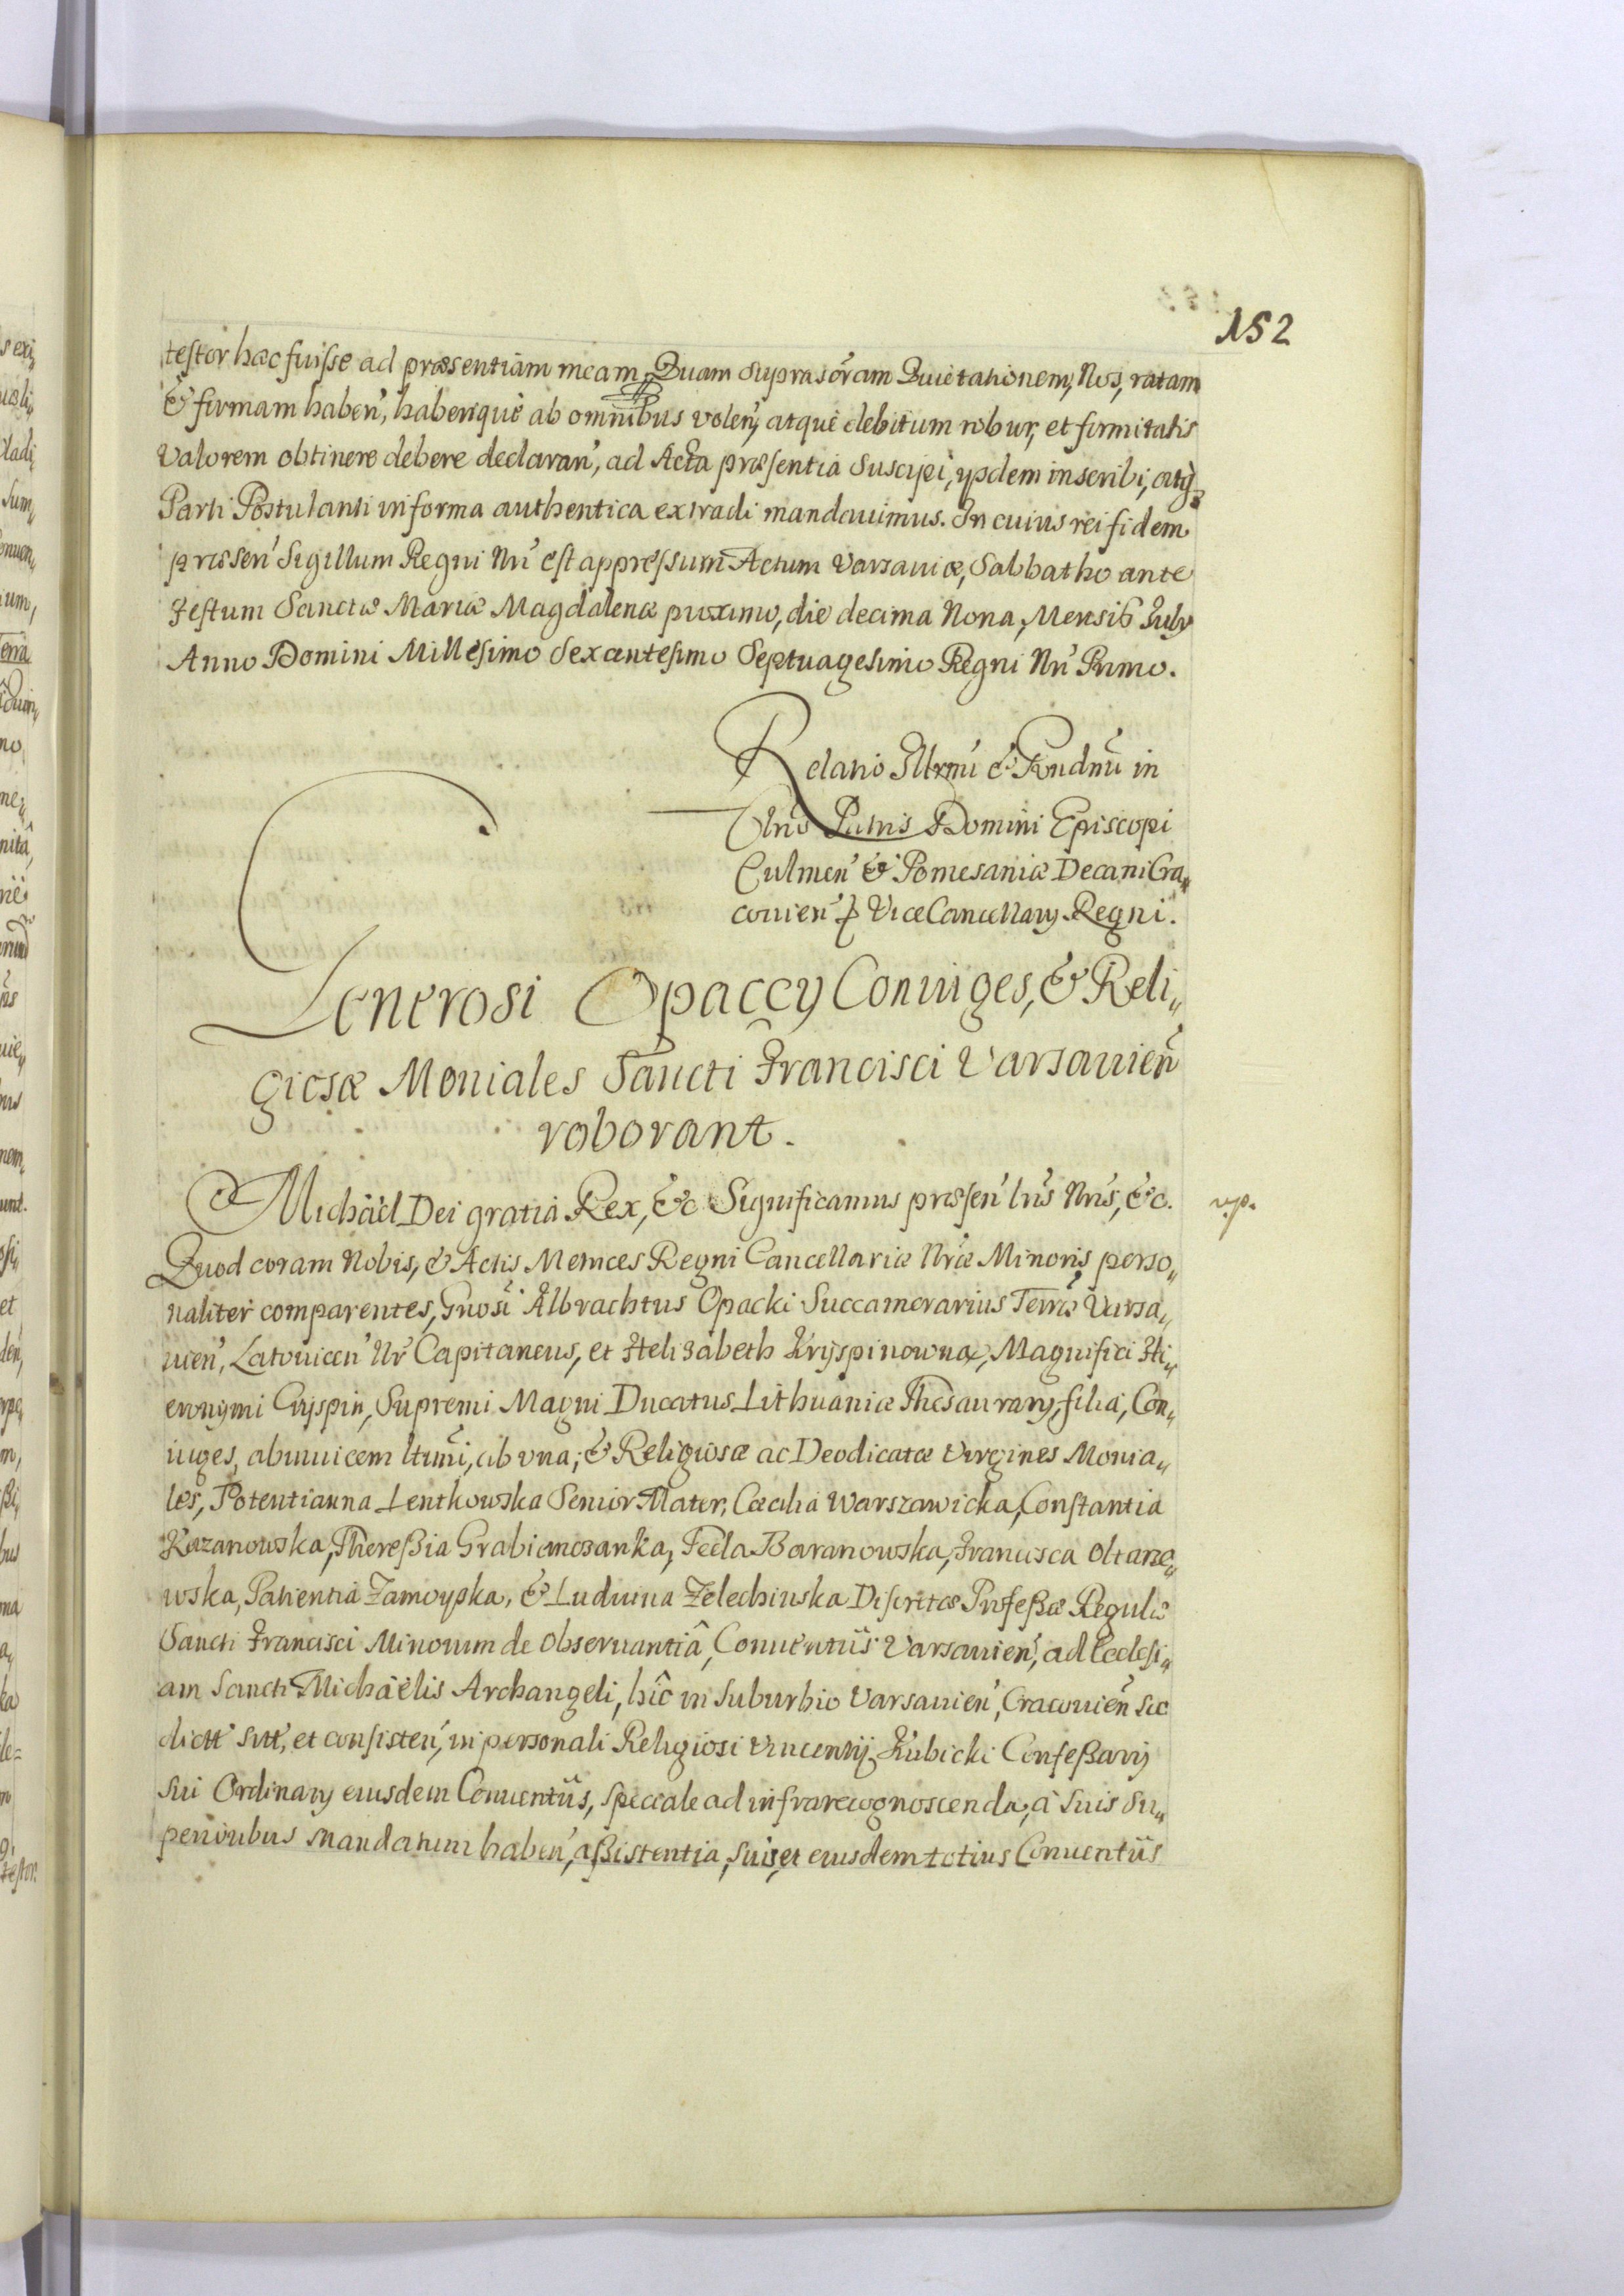 152
testor hæc fuisse ad præsentiam meam, Quam suprascrãm Quietationem, Nos, ratam
& firmam haben̓, haberiquè ab omnibus volen̓, atquè debitum robur, et firmitatis
Valorem obtinere debere declaran̓, ad Acta præsentia Suscipi, ijsdem inscribi, atq̀ꝫ
Parti Postulanti in forma authentica extradi mandauimus. In cuius rei fidem
præsen̓ Sigillum Regni Nrĩ est appressum Actum Varsauiæ, Sabbatho ante
Festum Sanctæ Mariæ Magdalenæ proximo, die decima Nona, Mensis July
Anno Domini Millesimo Sexcentesimo Septuagesimo Regni Nrĩ Primo.
Relatio Illrmi & Rndmi in
Chrō Patris Domini Episcopi
Culmen̓ & Pomesaniæ Decani Cra„
couien̓ ꝑ ViceCancellarij Regni.
Generosi Opaccy Coniuges, & Reli„
giosæ Moniales Sancti Francisci Varsauien̄
roborant.
Michäel Dei gratia Rex, &c Significamus præsen̓ lrĩs Nrĩs, &c.
Quod coram Nobis, & Actis Metrices Regni Cancellariæ Nræ Minoris perso„
naliter comparentes, Gnosi Albrachtus Opacki Succamerarius Terræ Varsa„
uien̓, Latouicen̓ Nr̃ Capitaneus, et Helizabeth Kryspinowna, Magnifici Hi„
eronymi Cryspin, Supremi Magni Ducatus Lithuaniæ Thesaurarij, filia, Con„
iuges, abinuicem ltimi, ab vna, & Religiosæ ac Deodicatæ Virgines Monia„
les, Potentianna Lentkowska Senior Mater, Cæcilia Warszawicka, Constantia
Kazanowska, Theressia Grabianczanka, Tecla Baranowska, Francisca Oltarze„
wska, Patientia Zamoyska, & Luduina Zelechinska Discretæ Professæ Regulæ
Sancti Francisci Minorum de Obseruantiâ, Conuentûs Varsauien̓, ad Ecclesi„
am Sancti Michäelis Archangeli, hîc in Suburbio Varsauien̓, Cracouien̄ sic
dictt̃ sitt̃, et consisten̓, in personali Religiosi Vincentij Kubicki Confessarij
sui Ordinarij eiusdem Conuentûs, speciale ad infrarecognoscenda, à suis Su„
perioribus mandatum haben̓, assistentia, suis, et eiusdem totius Conuentûs